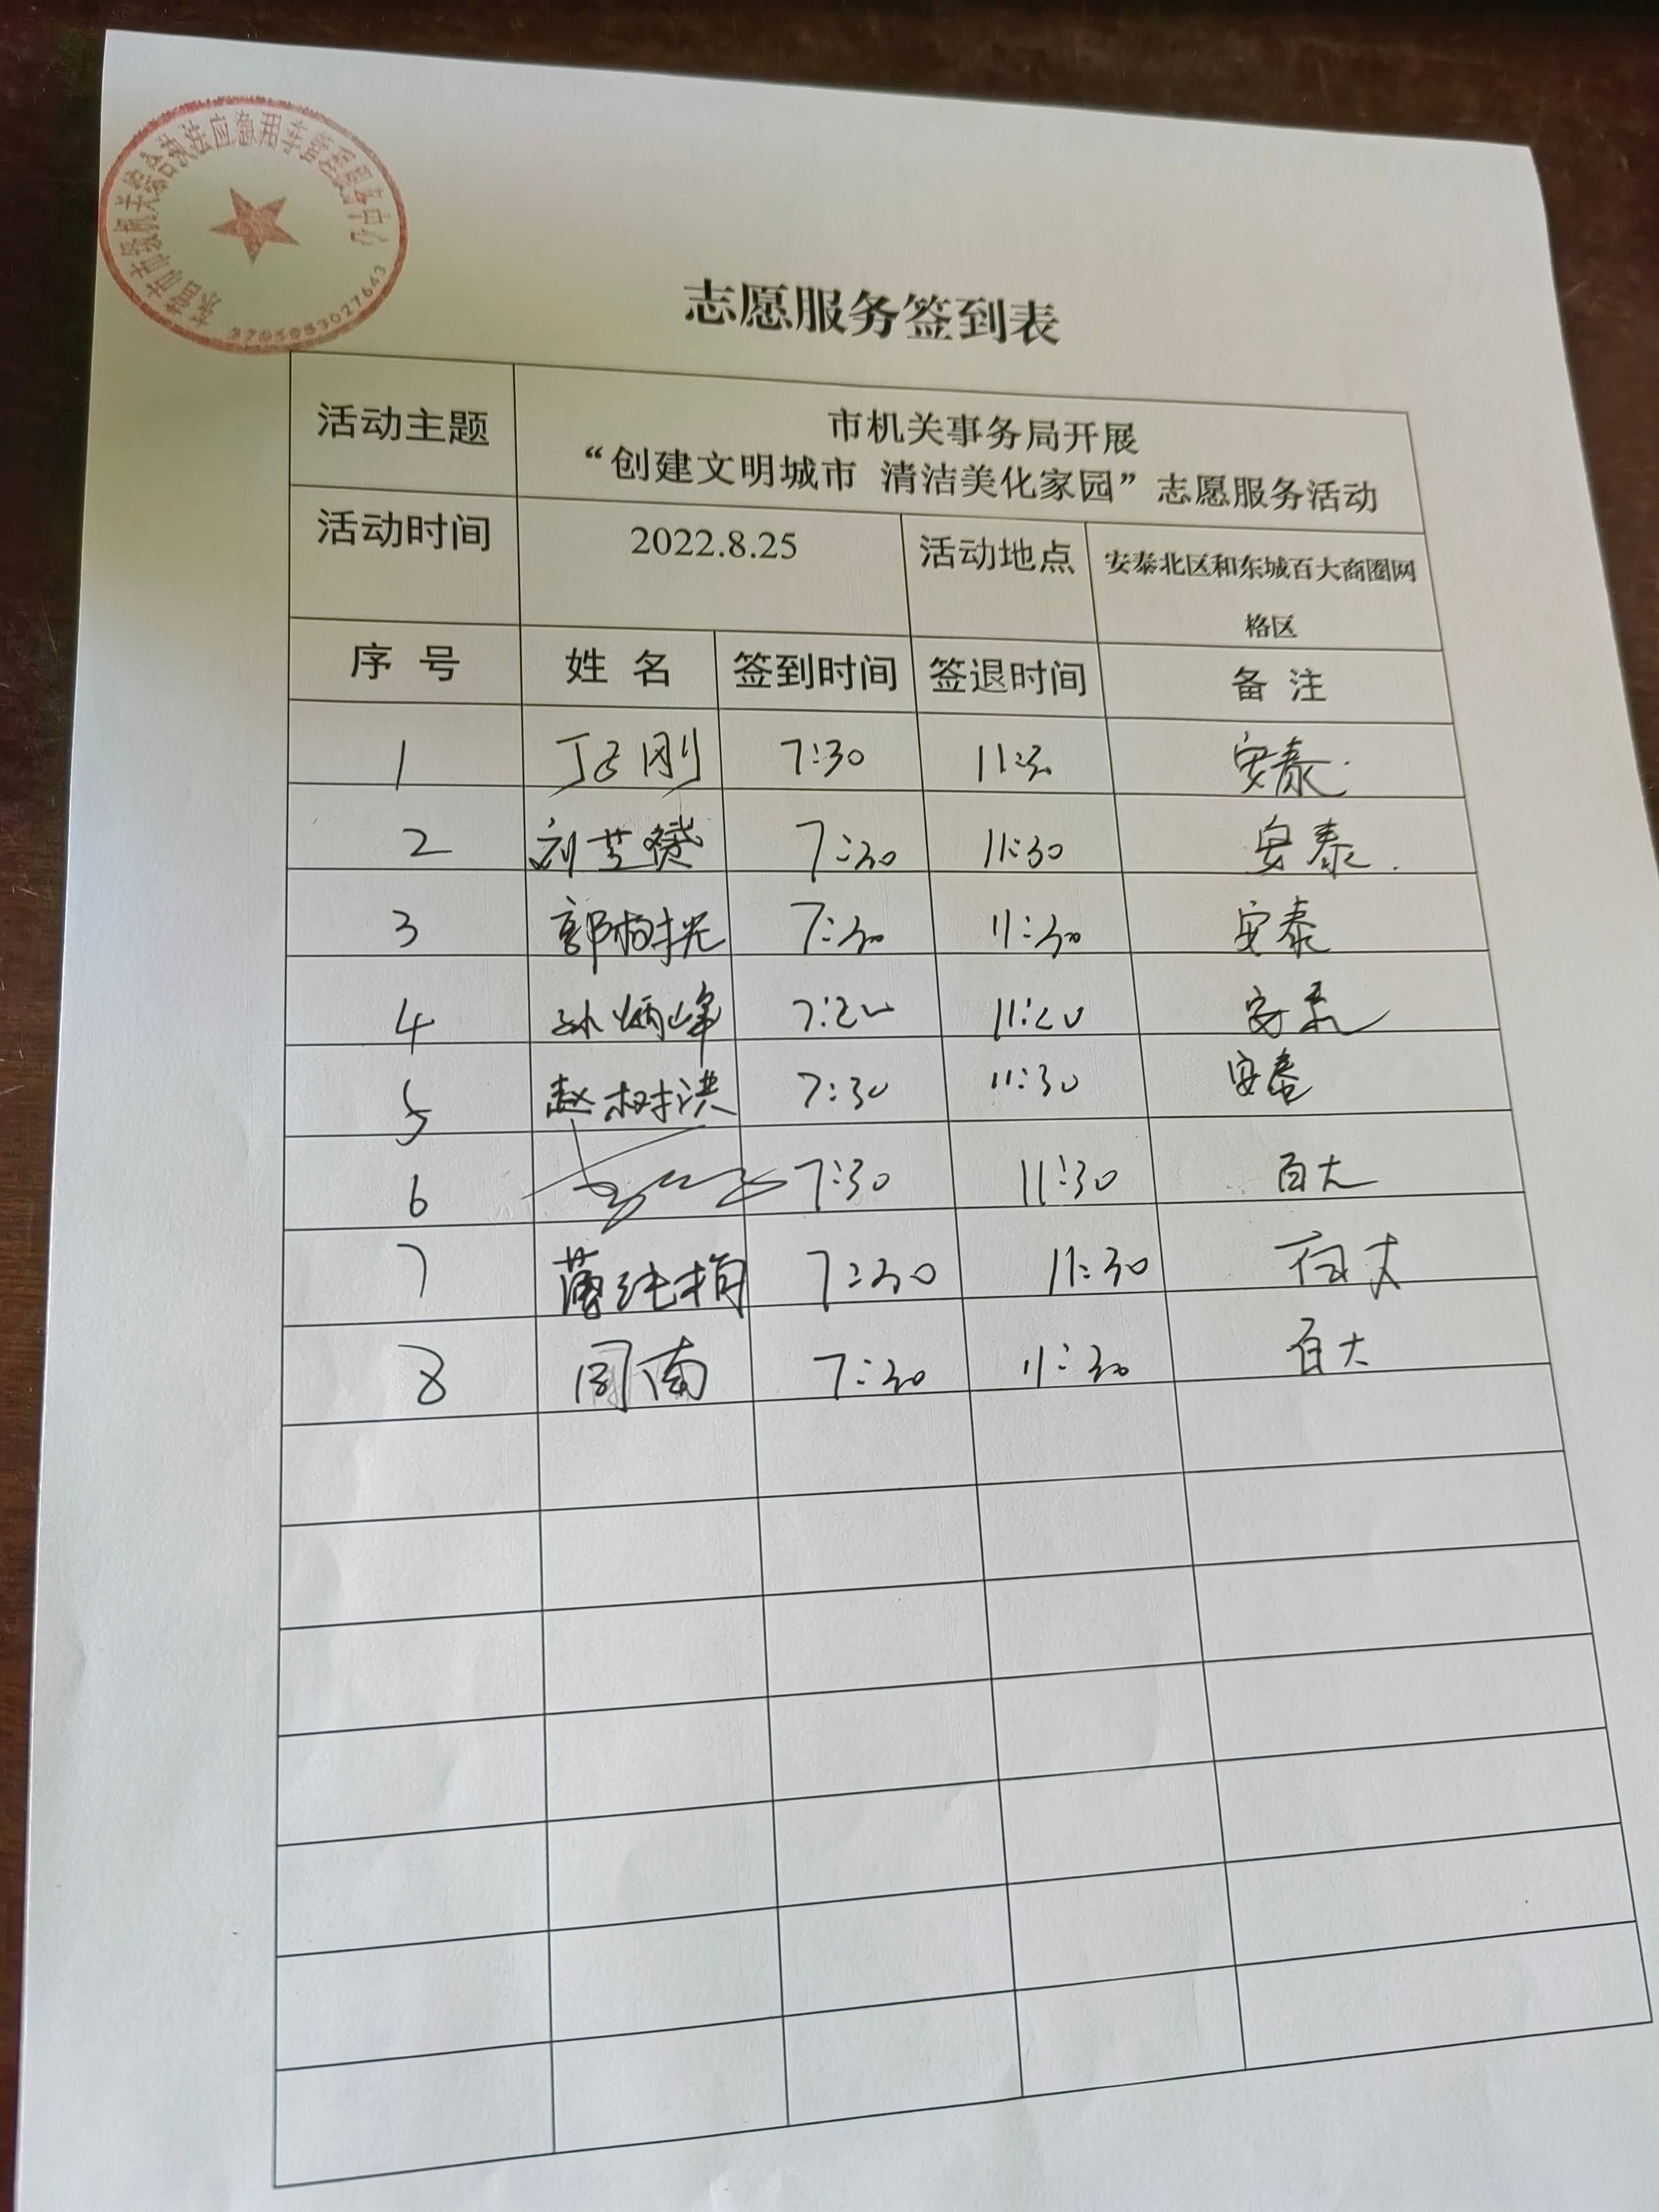 东营市市级机关综合执法应急用车管理服务中心
3705053027643
志愿服务签到表
活动主题
市机关事务局开展
“创建文明城市 清洁美化家园”志愿服务活动
活动时间 2022.8.25 活动地点 安泰北区和东城百大商圈网
格区
序号 姓名 签到时间 签退时间 备注
1 刚 7:30 11:30 安泰
2 刘芝 7:30 11:30 安泰
3 郭 7:30 11:30 安泰
4 孙炳峰 7:20 11:20 安泰
5 赵树洪 7:30 11:30 安泰
6 7:30 11:30 百大
7 薄纯梅 7:30 11:30 百大
8 周南 7:30 11:30 百大